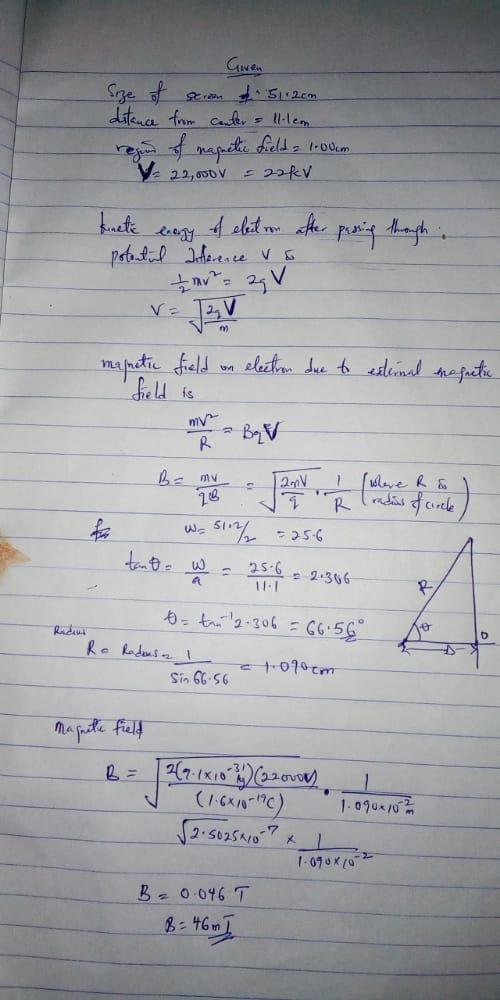 Given
Size of screen = 51.2cm
distance from center = 11.1cm
region of magnetic field = 1.00cm
V = 22,000V = 22kV
kinetic energy of electron after passing through
potential difference V is
½mv² = 2qV
V = √(2qV/m)
magnetic field on electron due to external magnetic
field is
mv²/R = BqV
B = mv/qB = √(2mV/q) · 1/R (where R is radius of circle)
w = 51.2/2 = 25.6
tanθ = w/a = 25.6/11.1 = 2.306
θ = tan⁻¹ 2.306 = 66.56°
R
θ
D
Radius
R = Radius = 1/sin 66.56 = 1.090cm
Magnetic field
B = √(2(9.1×10⁻³¹kg)(22000V)/(1.6×10⁻¹⁹C)) · 1/1.090×10⁻²m
√2.5025×10⁻⁷ × 1/1.090×10⁻²
B = 0.046 T
B = 46mT